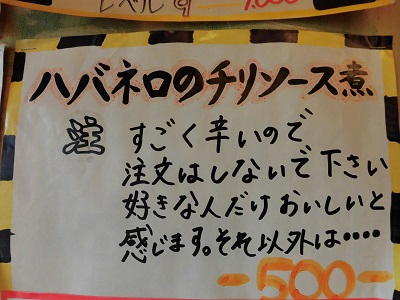 レベル9 1,000
ハバネロのチリソース煮
注 すごく辛いので
注文はしないで下さい
好きな人だけおいしいと
感じます。それ以外は‥‥
-500-